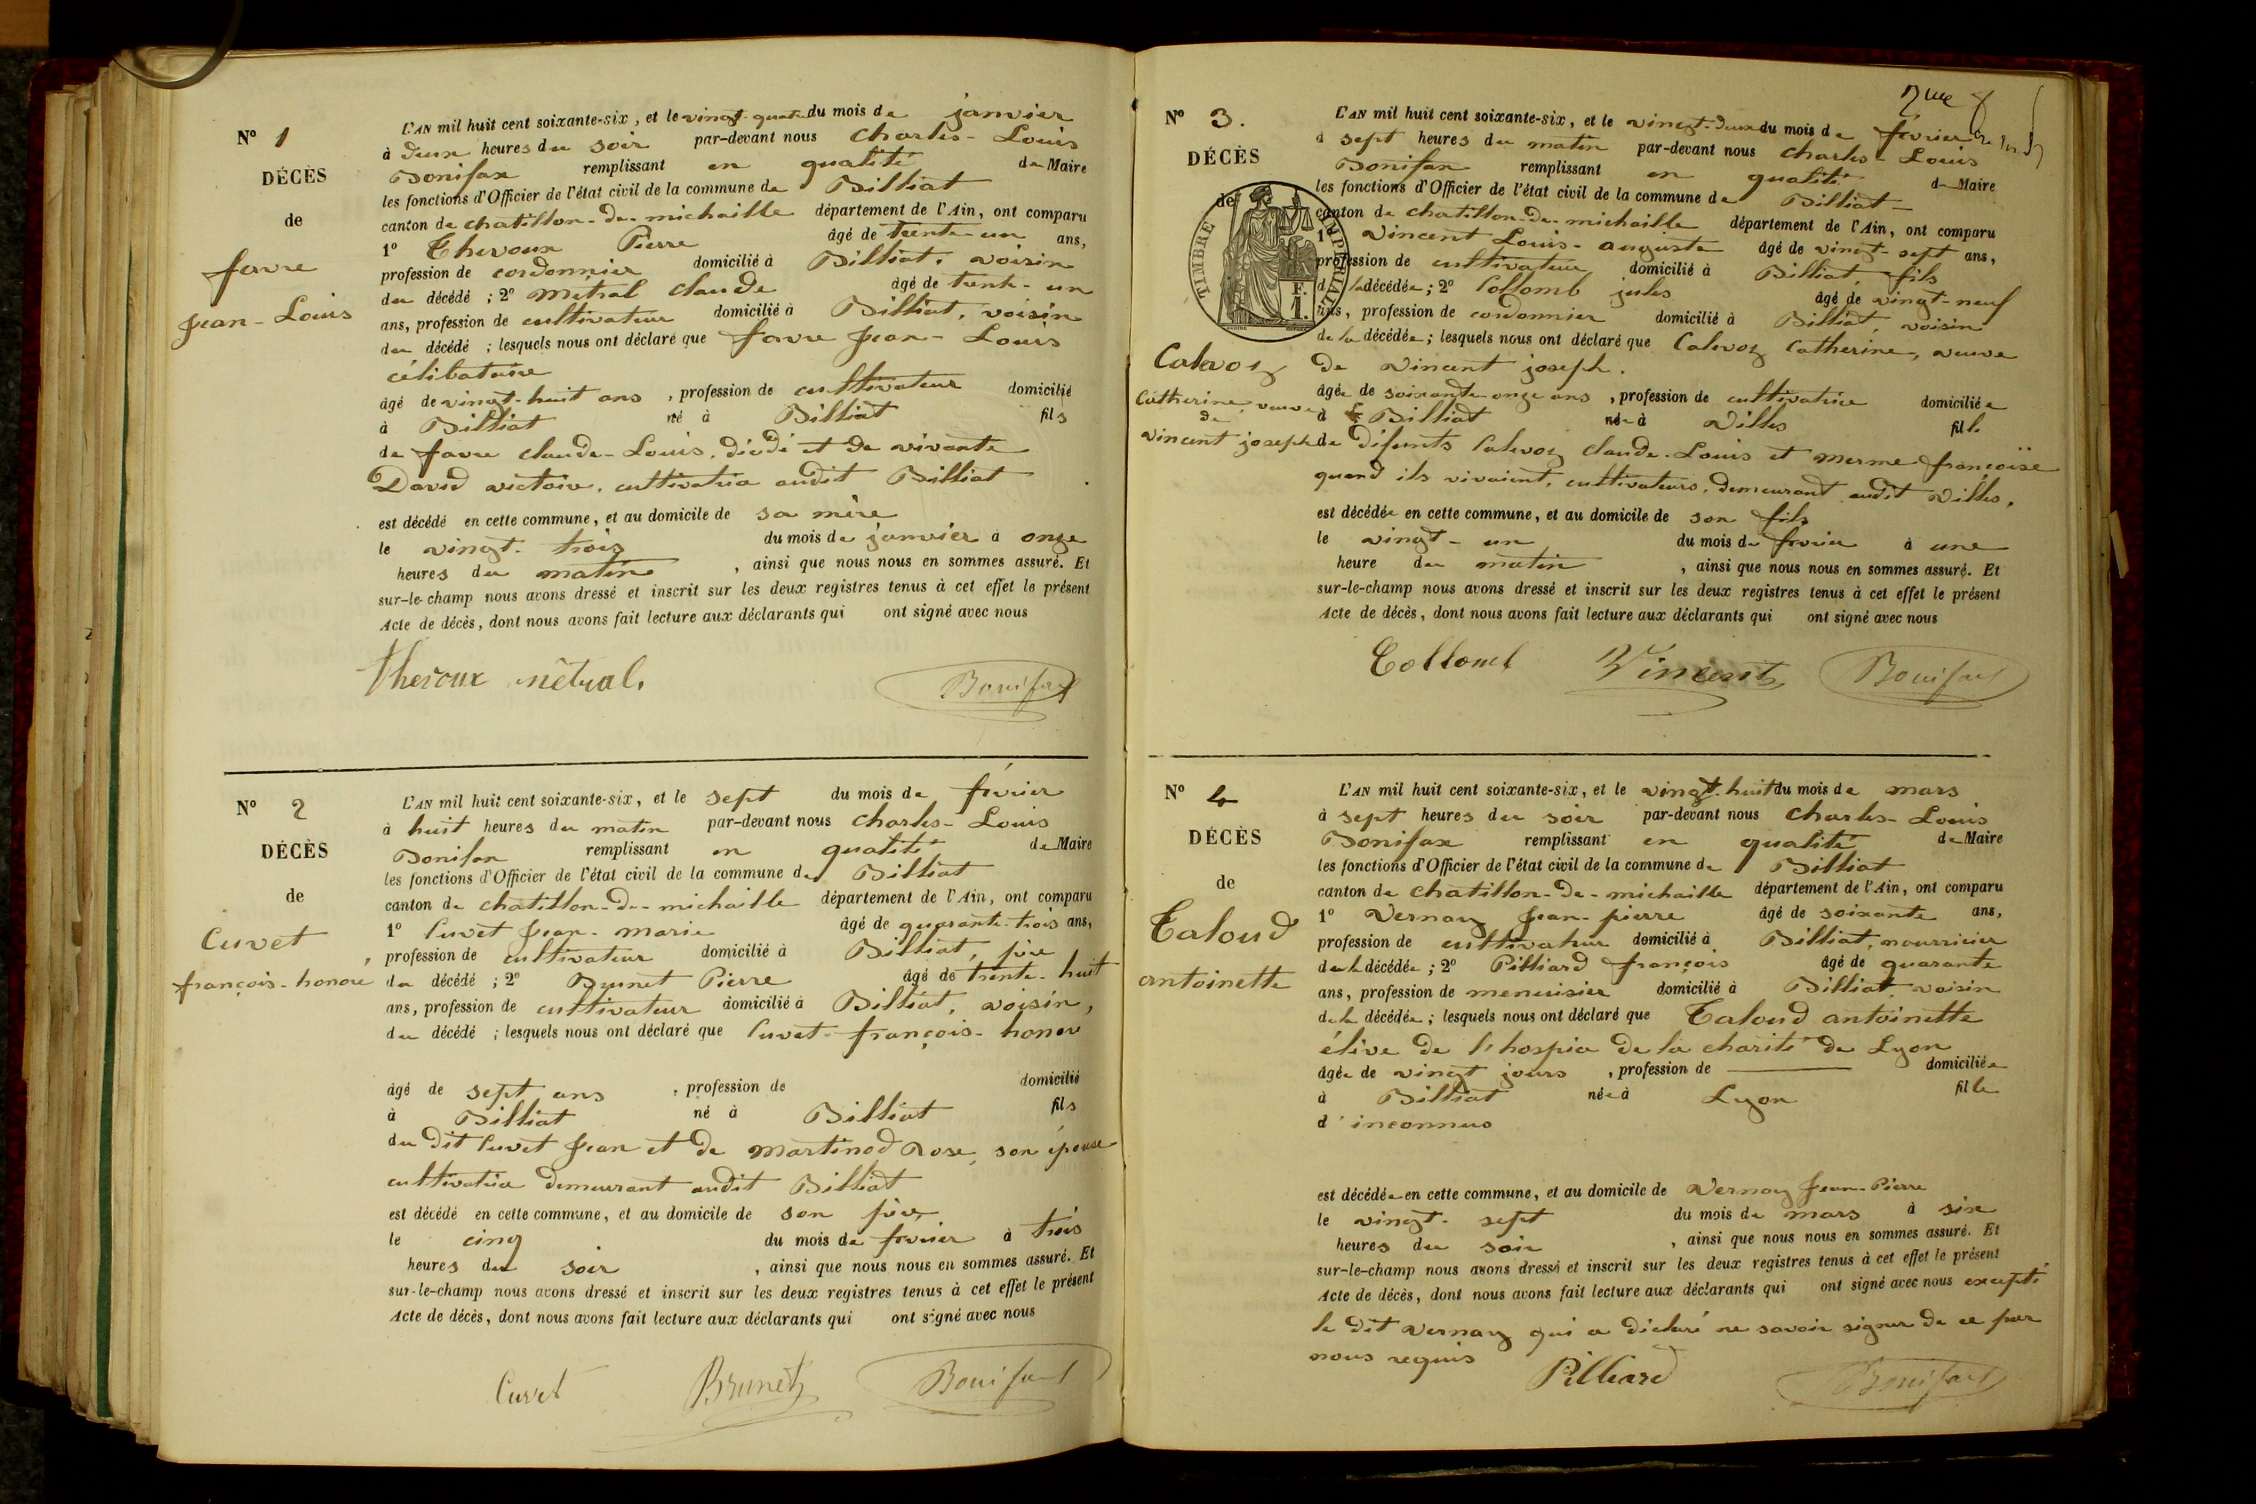 N° 1
DÉCÈS
de
favre
Jean-Louis
L'AN mil huit cent soixante-six, et le vingt-quatre du mois de janvier
à deux heures du soir par-devant nous Charles-Louis
Bonifax remplissant en qualité de Maire
les fonctions d'Officier de l'état civil de la commune de Billiat
canton de chatillon-de-michaille département de l'Ain, ont comparu
1° Thevoux Pierre âgé de trente-un ans,
profession de cordonnier domicilié à Billiat, voisin
du décédé ; 2° métral claude âgé de trente-un
ans, profession de cultivateur domicilié à Billiat, voisin
du décédé ; lesquels nous ont déclaré que favre Jean-Louis
célibataire
âgé de vingt-huit ans , profession de cultivateur domicilié
à Billiat né à Billiat fils
de favre claude-Louis, décédé et de vivante
David victoire, cultivatrice audit Billiat
est décédé en cette commune, et au domicile de sa mère
le vingt-trois du mois de janvier à onze
heures du matin , ainsi que nous nous en sommes assuré. Et
sur-le-champ nous avons dressé et inscrit sur les deux registres tenus à cet effet le présent
Acte de décès, dont nous avons fait lecture aux déclarants qui ont signé avec nous
Thevoux métral. Bonifax
N° 2
DÉCÈS
de
Cuvet
françois-honoré
L'AN mil huit cent soixante-six, et le sept du mois de février
à huit heures du matin par-devant nous Charles-Louis
Bonifax remplissant en qualité de Maire
les fonctions d'Officier de l'état civil de la commune de Billiat
canton de chatillon-de-michaille département de l'Ain, ont comparu
1° Cuvet Jean-marie âgé de quarante-trois ans,
profession de cultivateur domicilié à Billiat, père
du décédé ; 2° Brunet Pierre âgé de trente-huit
ans, profession de cultivateur domicilié à Billiat, voisin,
du décédé ; lesquels nous ont déclaré que Cuvet-françois-honoré
âgé de sept ans , profession de domicilié
à Billiat né à Billiat fils
du dit Cuvet Jean et de martinod Rose, son épouse
cultivatrice demeurant audit Billiat
est décédé en cette commune, et au domicile de son père
le cinq du mois de février à trois
heures du soir , ainsi que nous nous en sommes assuré. Et
sur-le-champ nous avons dressé et inscrit sur les deux registres tenus à cet effet le présent
Acte de décès, dont nous avons fait lecture aux déclarants qui ont signé avec nous
Cuvet Brunet Bonifax
N° 3.
DÉCÈS
de
TIMBRE IMPÉRIAL
F.
1.
Calevoz
Catherine, veuve
de
vincent joseph
L'AN mil huit cent soixante-six, et le vingt-deux du mois de février
à sept heures du matin par-devant nous Charles-Louis
Bonifax remplissant en qualité de Maire
les fonctions d'Officier de l'état civil de la commune de Billiat
canton de chatillon-de-michaille département de l'Ain, ont comparu
1° vincent Louis-auguste âgé de vingt-sept ans,
profession de cultivateur domicilié à Billiat, fils
de la décédée ; 2° Collomb jules âgé de vingt-neuf
ans, profession de cordonnier domicilié à Billiat, voisin
de la décédée ; lesquels nous ont déclaré que Calevoz Catherine, veuve
de vincent joseph.
âgée de soixante onze ans , profession de cultivatrice domiciliée
à Billiat née à Villes fille
de défunts Calevoz claude-Louis et merme françoise
quand ils vivaient, cultivateurs, demeurant audit Villes,
est décédée en cette commune, et au domicile de son fils
le vingt-un du mois de février à une
heure du matin , ainsi que nous nous en sommes assuré. Et
sur-le-champ nous avons dressé et inscrit sur les deux registres tenus à cet effet le présent
Acte de décès, dont nous avons fait lecture aux déclarants qui ont signé avec nous
Collomb Vincent Bonifax
N° 4
DÉCÈS
de
Taloud
antoinette
L'AN mil huit cent soixante-six, et le vingt-huit du mois de mars
à sept heures du soir par-devant nous Charles-Louis
Bonifax remplissant en qualité de Maire
les fonctions d'Officier de l'état civil de la commune de Billiat
canton de chatillon-de-michaille département de l'Ain, ont comparu
1° Vernay Jean-pierre âgé de soixante ans,
profession de cultivateur domicilié à Billiat, nourricier
de la décédée ; 2° Pilliard françois âgé de quarante
ans, profession de menuisier domicilié à Billiat voisin
de la décédée ; lesquels nous ont déclaré que Taloud antoinette
élève de l'hospice de la charité de Lyon
âgée de vingt jours , profession de domiciliée
à Billiat née à Lyon fille
d'inconnus
est décédée en cette commune, et au domicile de Vernay Jean-Pierre
le vingt-sept du mois de mars à six
heures du soir , ainsi que nous nous en sommes assuré. Et
sur-le-champ nous avons dressé et inscrit sur les deux registres tenus à cet effet le présent
Acte de décès, dont nous avons fait lecture aux déclarants qui ont signé avec nous excepté
le dit Vernay qui a déclaré ne savoir signer de ce par
nous requis Pilliard Bonifax